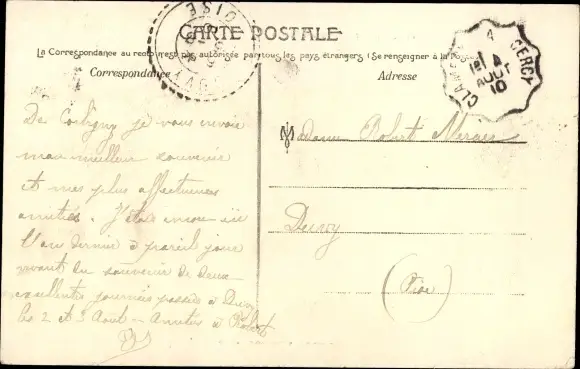 CARTE POSTALE
La Correspondance au recto n'est pas autorisée par tous les pays étrangers (Se renseigner à la Poste)
Correspondance
Adresse
OISE
CERCY
A
1
4
AOUT
10
De Corbigny je vous envoie
mon meilleur souvenir
et mes plus affectueuses
amitiés. J'étais encore ici
l'an dernier à pareil jour
vivant du souvenir de deux
excellentes journées passées à
les 2 et 3 Août - Amitiés à Robert
Madame Robert
(Oise)